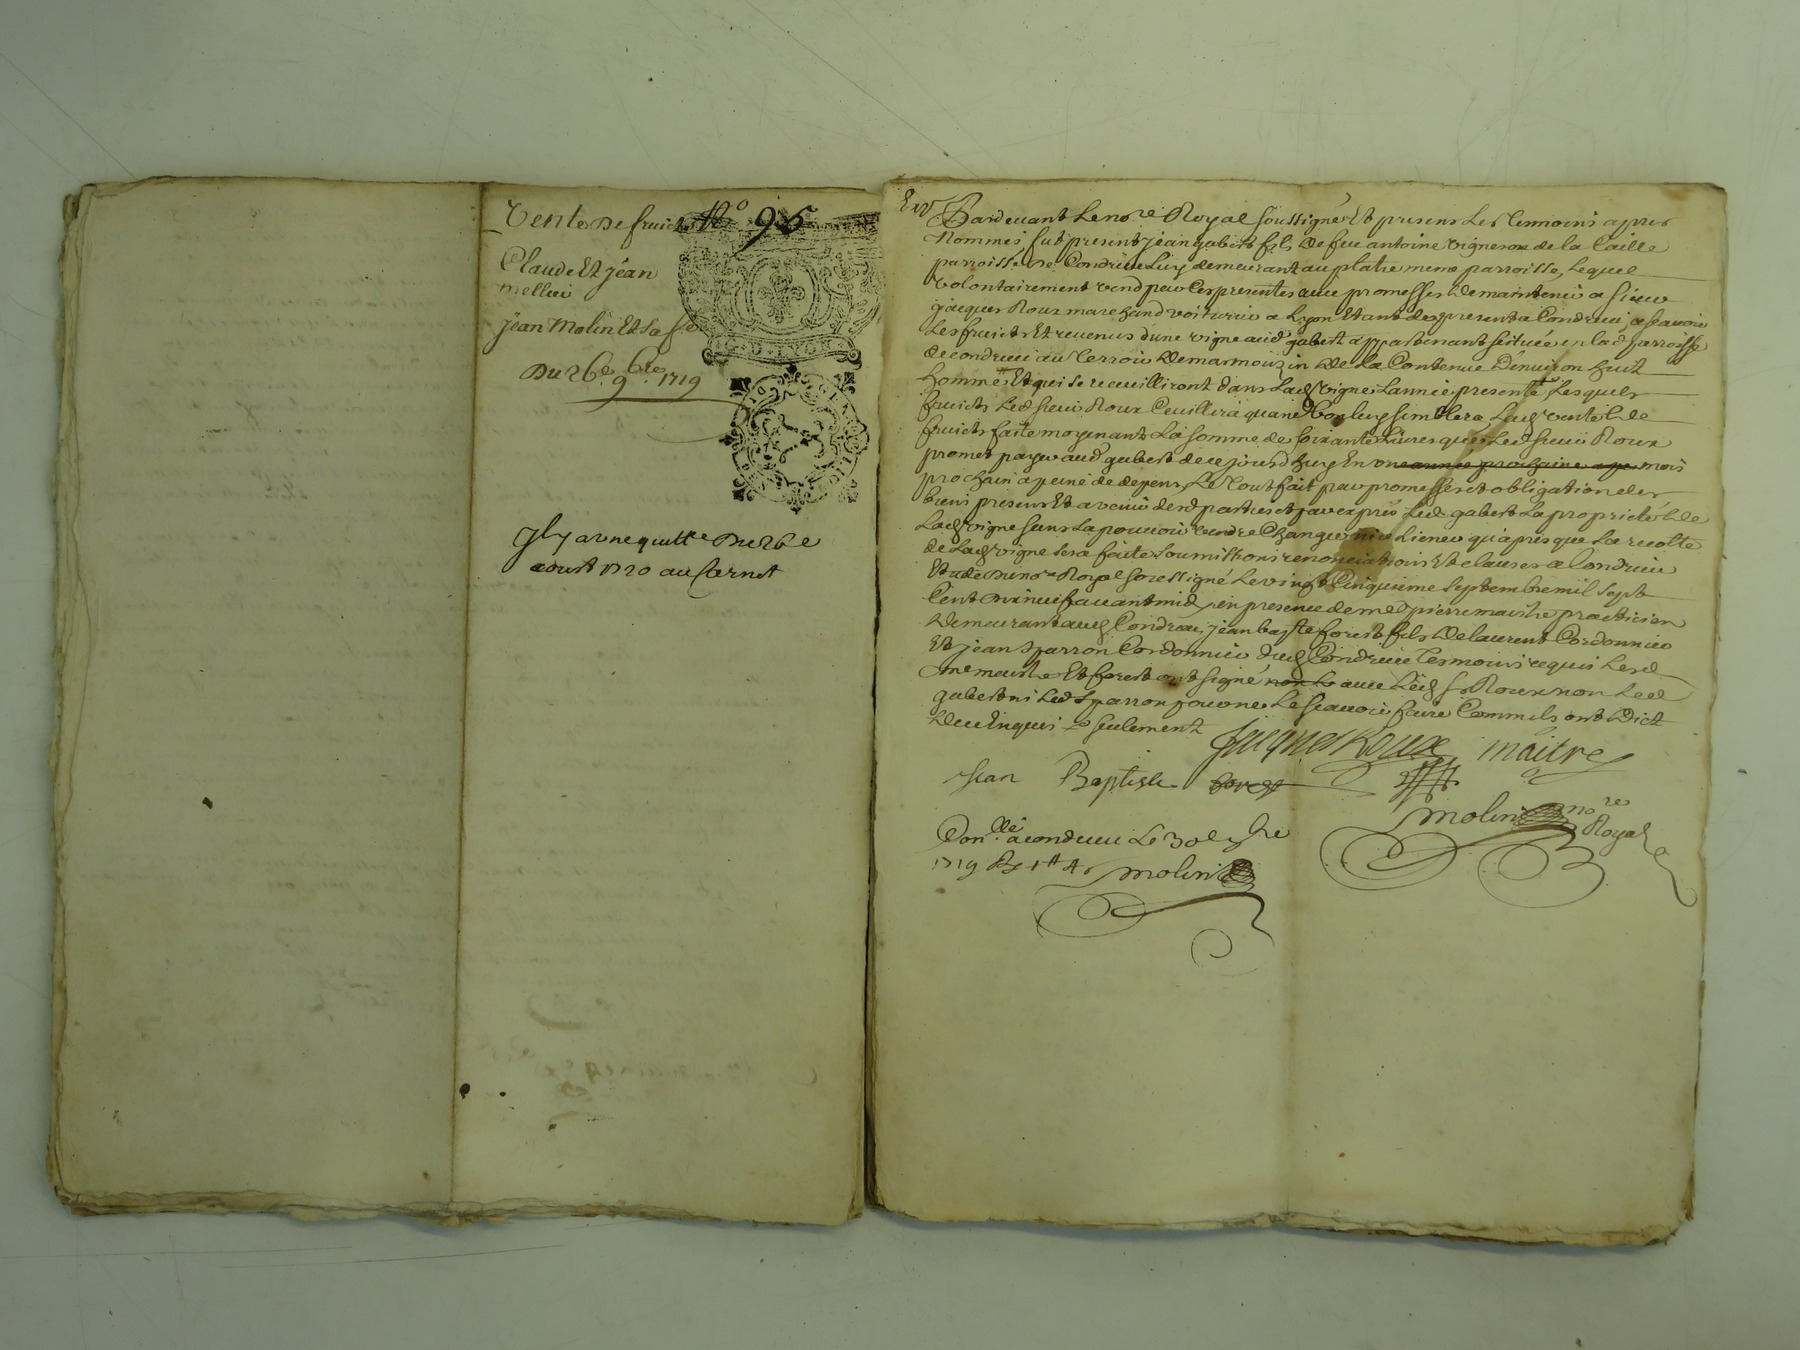 Vente De fruicts N° 95
Claude Et jean
mellier
jean Molin Et Sa fe
Du 26e 9bre 1719
Il y a une quitte Du 26e
aoust 1720 au Carnet
Pardevant Le nore Royal soussigné Et presens Les Temoins apres
Nommes fut present jean gabert fils De feu antoine vigneron de la Caille
parroisse De Condrieu Luy demeurant au platre meme parroisse, Lequel
volontairement vend par Ces presentes avec promesses De maintenir a sieur
jacques Roux marchand voiturier a Lyon Etant de present a Condrieu, a scavoir
Les fruicts Et revenus d'une vigne aud gabert appartenant scituée en lad parroisse
de condrieu au Terroir De marmouzin De La Contenue D'environ huit
hommes Et qui se recueilliront dans Lad vigne Lannée presente Lesquels
fruicts Led sieur Roux Cueillira quand bon luy semblera Lad vente De
fruicts faite moyenant La somme de soixante Livres que Led sieur Roux
promet payer aud gabert de ce jourd'huy En une année prochaine mois
prochain a peine de depens, Le Tout fait par promesses et obligation des
biens presens Et a venir desd parties et par expres Led gabert La proprieté De
Lad vigne sans La pouvoir vendre Changer ni aliener qu'apres que La recolte
de Lad vigne sera faite soumissions renonciations Et clauses a Condrieu
Etude Du nore Royal soussigné Le vingt Cinquieme septembre mil sept
Cent Dix neuf avant midy en presence de me pierre maitre practicien
Demeurant aud Condrieu, jean bapte forest fils De laurent Cordonnier
Et jean sparron Cordonnier dud Condrieu Temoins requis Lesd
me maitre Et forest ont signé non Le avec Led sr Roux non Led
gabert ni Led sparron pour ne Le scavoir faire Comm'ils ont Dict
De ce Enquis seulement
Jacques Roux maitre
Jean Baptiste forest
molin nore
Royal
Conllé a condrieu Le 30e 7bre
1719 molin